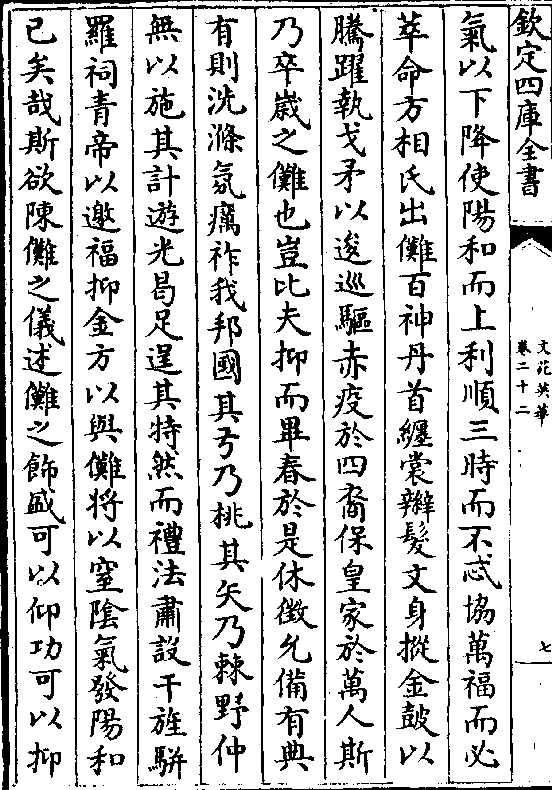 欽定四庫全書
文苑英華
卷二十二
七
氣以下降使陽和而上利順三時而不忒協萬福而必
萃命方相氏出儺百神丹首纒裳辮髮文身摐金鼓以
騰躍執戈矛以逡巡驅赤疫於四裔保皇家於萬人斯
乃卒嵗之儺也豈比夫抑而畢春於是休徴允備有典
有則洗滌氛癘祚我邦國其弓乃挑其矢乃棘野仲
無以施其計遊光曷足逞其特然而禮法肅設干旌駢
羅祠青帝以邀福抑金方以與儺將以窒陰氣發陽和
已矣哉斯欲陳儺之儀述儺之飾盛可以仰功可以抑